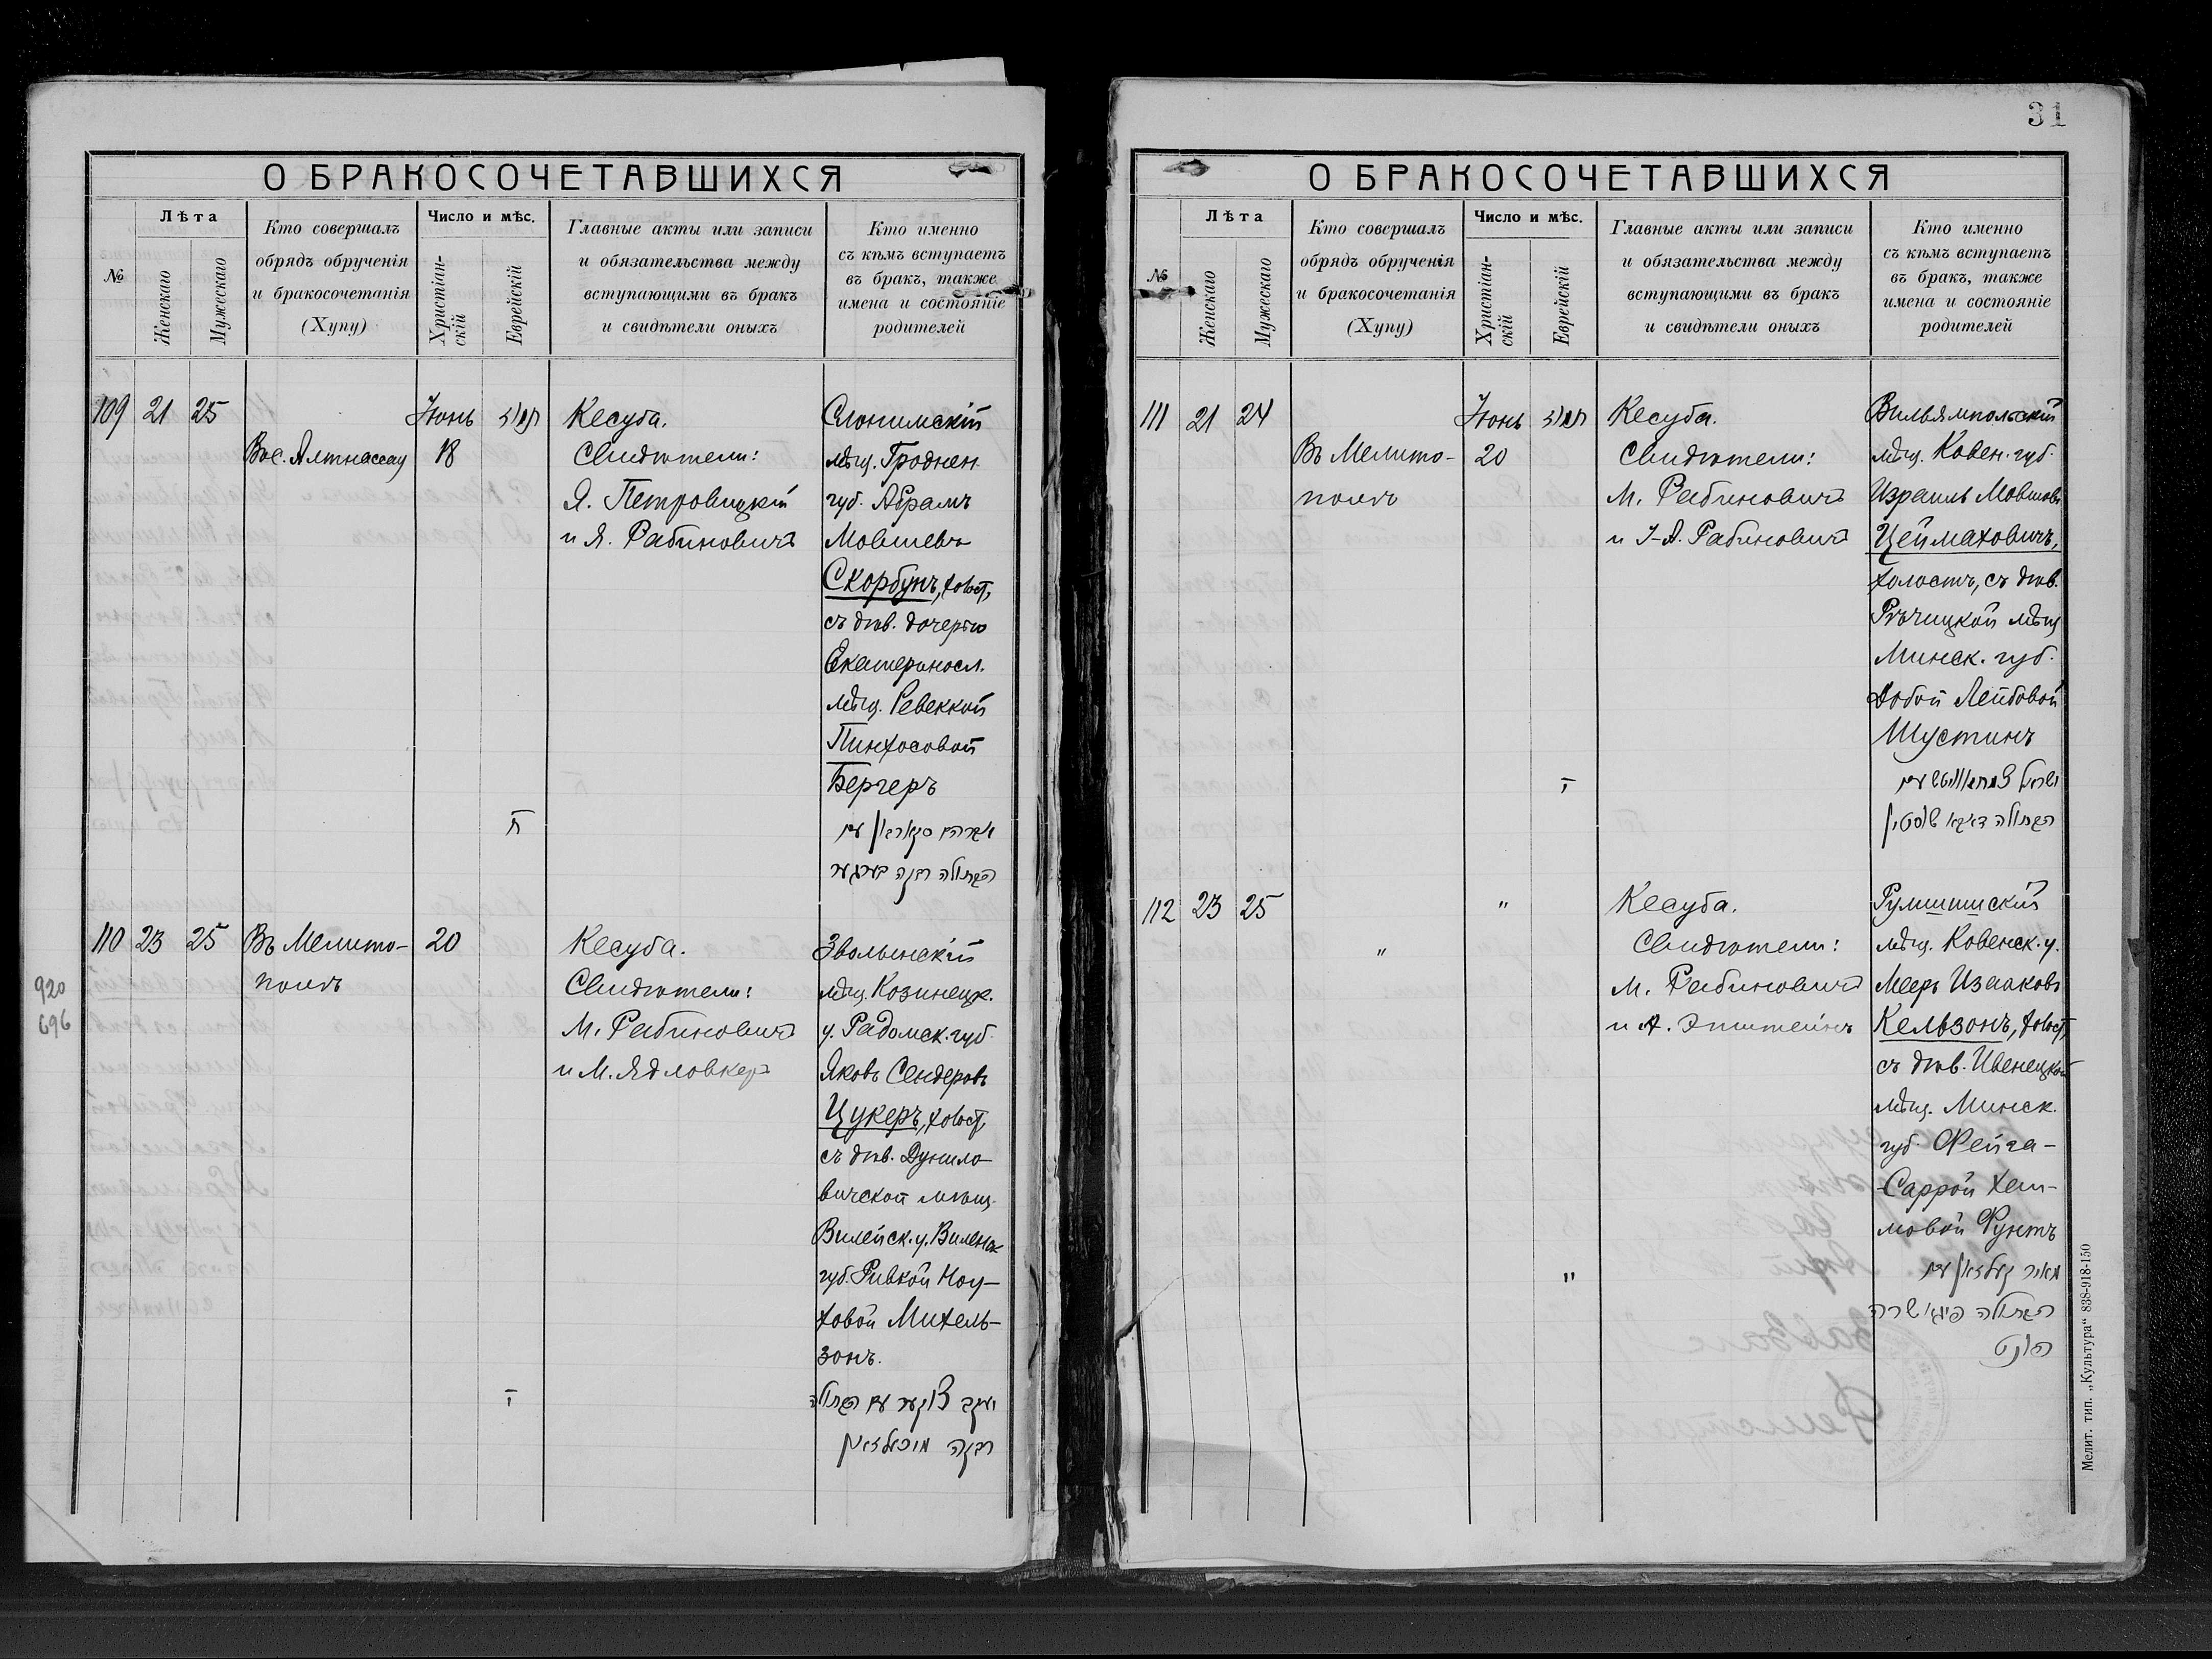 О БРАКОСОЧЕТАВШИХСЯ
№
Лѣта
Женскаго
Мужескаго
Кто совершалъ
обрядъ обрученія
и бракосочетанія
(Хупу)
Число и мѣс.
Христіан-
скій
Еврейскій
Главные акты или записи
и обязательства между
вступающими въ бракъ
и свидѣтели оныхъ
Кто именно
съ кѣмъ вступаетъ
въ бракъ, также
имена и состояніе
родителей
109 21 25
Вос. Алтнассау
Іюнь
18
סיון
ח
Кесуба.
Свидѣтели:
Я. Петровицкій
и Я. Рабиновичъ
Слонимскій
мѣщ. Гроднен.
губ. Абрамъ
Мовшевъ
Скорбунъ, холост,
съ дѣв. дочерью
Екатериносл.
мѣщ. Ревеккой
Пинхосовой
Бергеръ
אברהם סקארבון עם
הבתולה רבקה בערגער
110 23 25
920
696
Въ Мелито-
полѣ
20
י
Кесуба.
Свидѣтели:
М. Рабиновичъ
и М. Ядловкеръ
Звольенскій
мѣщ. Козинецк.
у. Радомск. губ.
Яковъ Сендеровъ
Цукеръ, холост,
съ дѣв. Дунило-
вичской мѣщ.
Вилейск. у. Виленск
губ. Ривкой Ноу-
ховой Михель-
зонъ.
יעקב צוקער עם הבתולה
רבקה מיכעלזאן
31
О БРАКОСОЧЕТАВШИХСЯ
№
Лѣта
Женскаго
Мужескаго
Кто совершалъ
обрядъ обрученія
и бракосочетанія
(Хупу)
Число и мѣс.
Христіан-
скій
Еврейскій
Главные акты или записи
и обязательства между
вступающими въ бракъ
и свидѣтели оныхъ
Кто именно
съ кѣмъ вступаетъ
въ бракъ, также
имена и состояніе
родителей
111 21 24
Въ Мелито-
полѣ
Іюнь
20
סיון
י
Кесуба.
Свидѣтели:
М. Рабиновичъ
и І-А. Рабиновичъ
Вильямпольскій
мѣщ. Ковен. губ.
Израиль Мовшовъ
Цеймаховичъ,
холостъ, съ дѣв.
Рѣчицкой мѣщ
Минск. губ.
Добой Лейбовой
Шустинъ
ישראל עם
הבתולה דאבא שוסטין
112 23 25
"
"
"
Кесуба.
Свидѣтели:
М. Рабиновичъ
и А. Эпштейнъ
Румшишскій
мѣщ. Ковенск. у.
Мееръ Изааковъ
Кельзонъ, холост,
съ дѣв. Ивенецкой
мѣщ. Минск.
губ. Фейга-
-Саррой Хаи-
мовой Фунтъ
מאיר קעלזאן עם
הבתולה פייגא שרה
פונט
Мелит. тип. „Культура“ 838-918-150